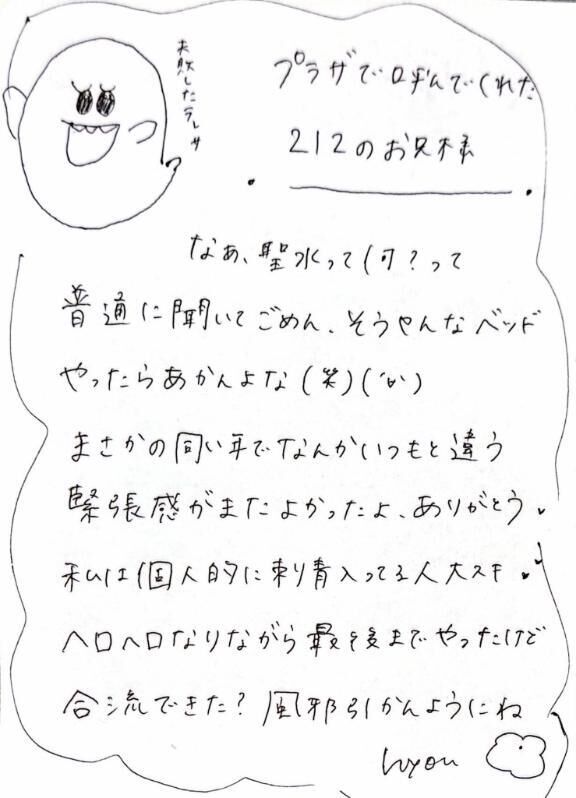 失敗したテレサ
プラザで呼んでくれた
212のお兄様
なぁ、聖水って何?って
普通に聞いてごめん、そうやんなベッド
やったらあかんよな(笑)
まさかの同い年でなんかいつもと違う
緊張感がまたよかったよ、ありがとう
私は個人的に刺青入ってる人大スキ
ヘロヘロなりながら最後までやったけど
合流できた?風邪引かんようにね